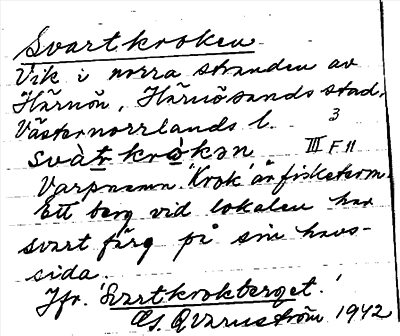 Svartkroken
Vik i norra stranden av
Härnön, Härnösands stad,
Västernorrlands l.
3
svàtkròkən III F 11
Varpnamn. 'Krok' är fisketerm.
Ett berg vid lokalen har
svart färg på sin havs-
sida.
Jfr. 'Svartkrokberget.'
Qvarnström 1942